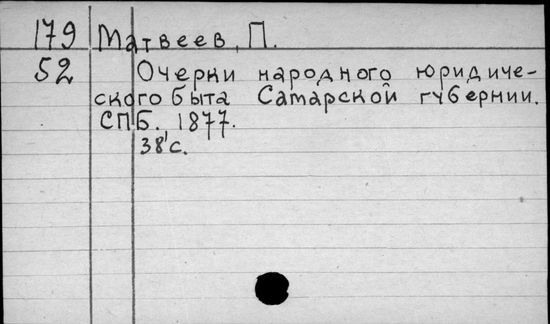 179 Матвеев, П.
52 Очерки народного юридиче-
ского быта Самарской губернии.
СПБ., 1877.
38 с.